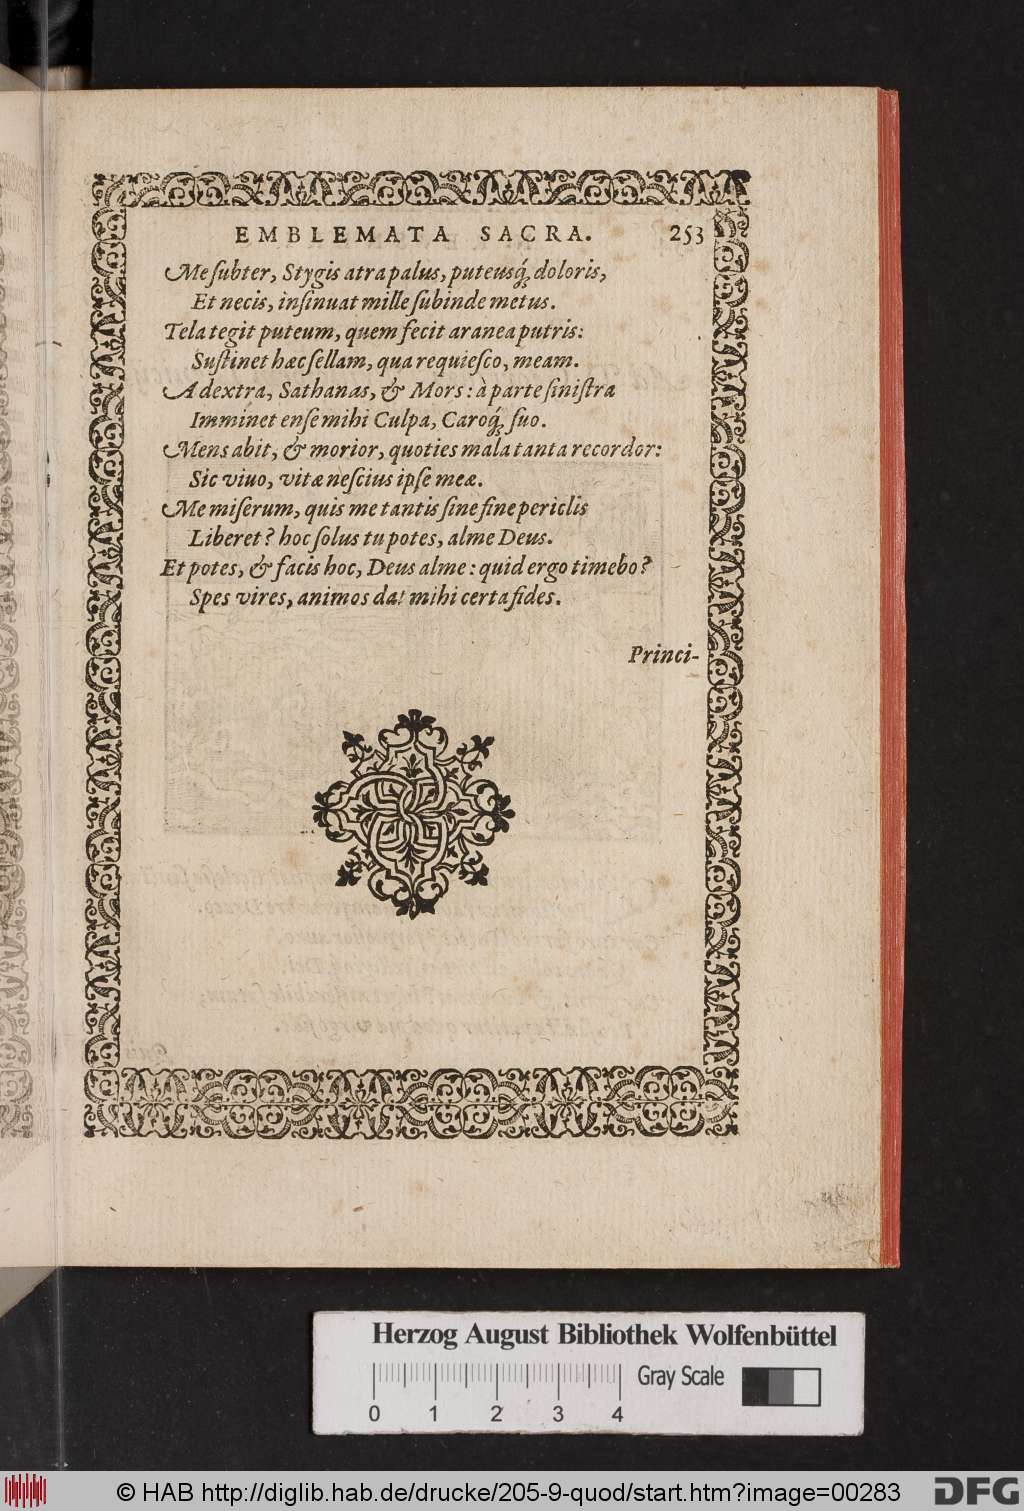 EMBLEMATA SACRA. 253
Me ſubter, Stygis atra palus, puteusq́; doloris,
Et necis, inſinuat mille ſubinde metus.
Tela tegit puteum, quem fecit aranea putris:
Suſtinet hæc ſellam, qua requieſco, meam.
A dextra, Sathanas, & Mors: à parte ſiniſtra
Imminet enſe mihi Culpa, Caroq́; ſuo.
Mens abit, & morior, quoties mala tanta recordor:
Sic viuo, vitæ neſcius ipſe meæ.
Me miſerum, quis me tantis ſine fine periclis
Liberet? hoc ſolus tu potes, alme Deus.
Et potes, & facis hoc, Deus alme: quid ergo timebo?
Spes vires, animos dat mihi certa fides.
Princi-
Herzog August Bibliothek Wolfenbüttel
Gray Scale
0 1 2 3 4
© HAB http://diglib.hab.de/drucke/205-9-quod/start.htm?image=00283
DFG